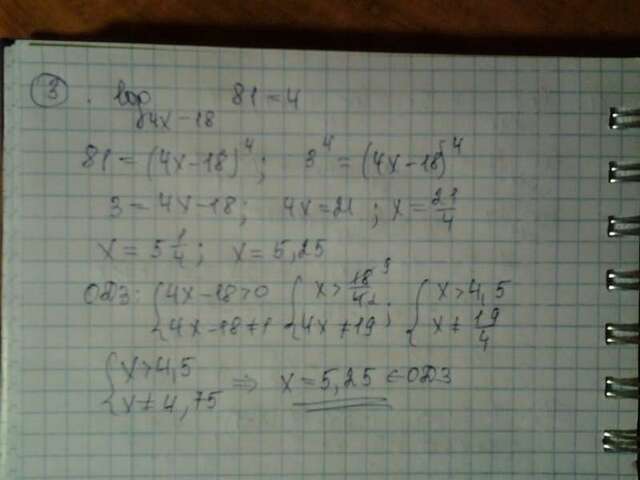 ③. log₄ₓ₋₁₈ 81 = 4
81 = (4x-18)⁴; 3⁴ = (4x-18)⁴
3 = 4x-18; 4x = 21; x = 21/4
x = 5 1/4; x = 5,25
ОДЗ: { 4x-18>0 4x-18≠1 { x> 18/4 9 2 4x≠19 ; { x>4,5 x≠ 19/4
{ x>4,5 x≠4,75 ⇒ x = 5,25 ∈ ОДЗ